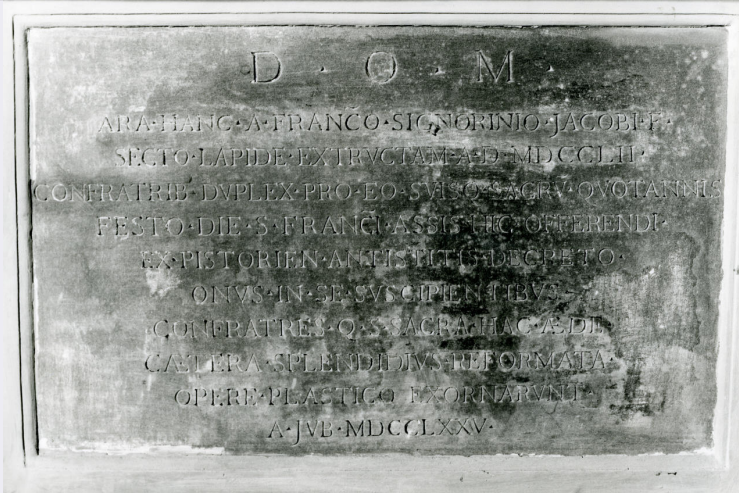 D · O · M ·
ARA · HANC · A · FRANCO · SIGNORINIO · JACOBI · F ·
SECTO · LAPIDE · EXTRVCTAM · A · D · MDCCLII ·
CONFRATRIB · DVPLEX · PRO · EO · SVISQ · SACRV · QVOTANNIS
FESTO · DIE · S · FRANCI · ASSIS · HIC · OFFERENDI ·
EX · PISTORIEN · ANTISTITIS · DECRETO ·
ONVS · IN · SE · SVSCIPIENTIBVS
CONFRATRES · Q · S · SACRA · HAC · ÆDE
CÆTERA · SPLENDIDIVS · REFORMATA ·
OPERE · PLASTICO · EXORNARVNT ·
A · JVB · MDCCLXXV ·